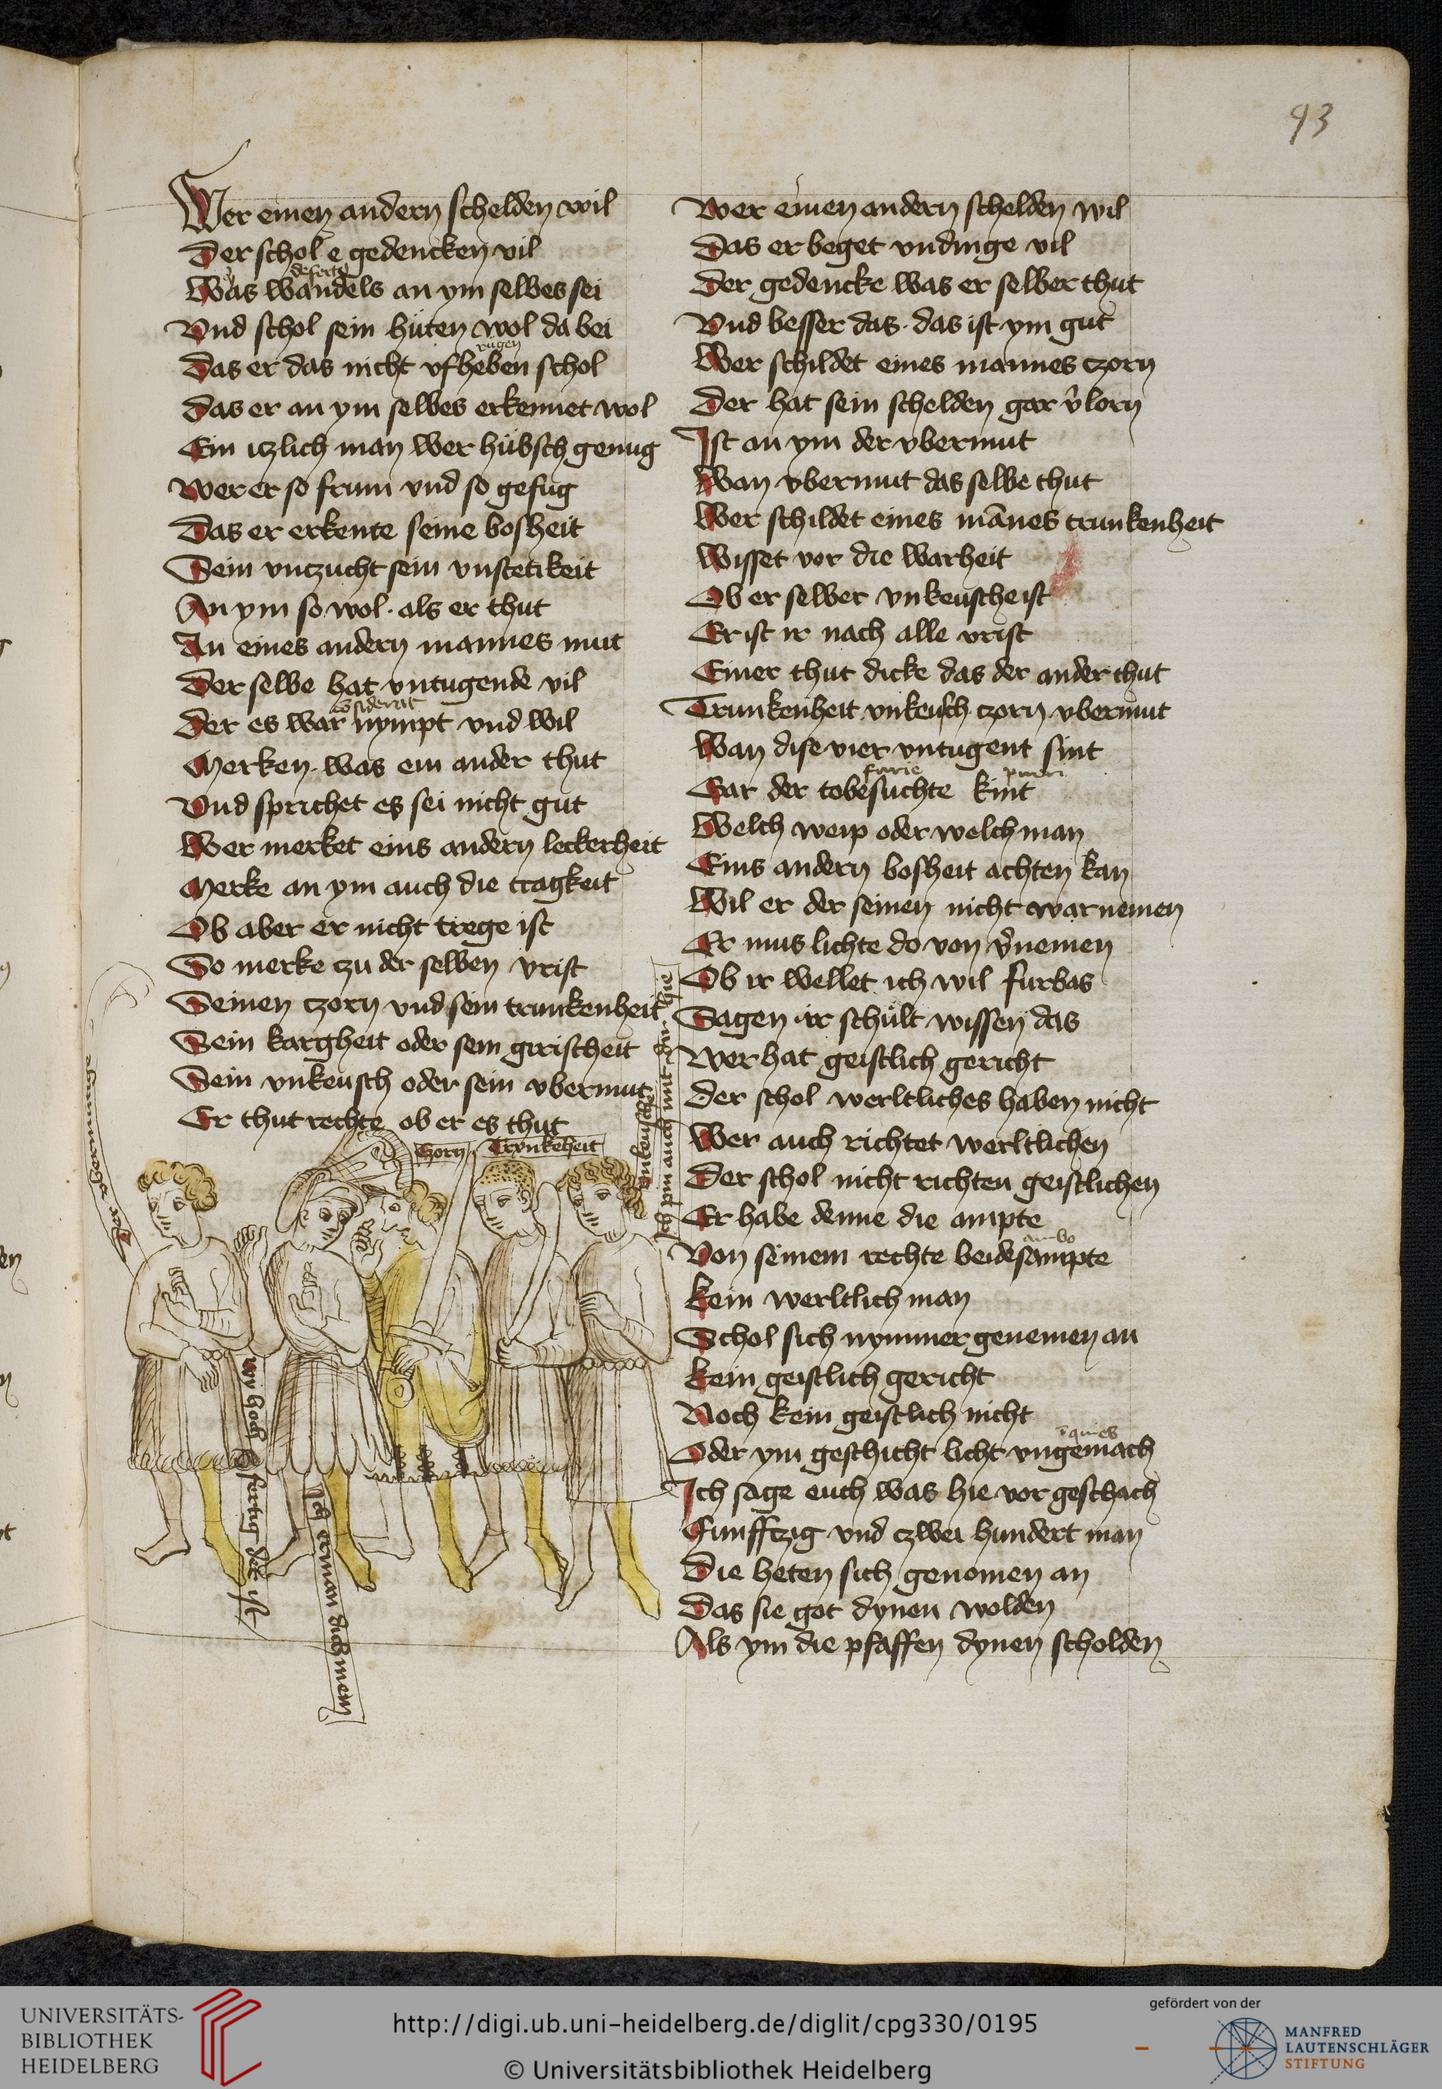 93
Wer einen andern schelden wil
Der schol e gedencken vil
Was wandels an ym selbes sei
Vnd schol sein hüten wol da bei
rugen
Das er das nicht vfheben schol
Das er an ym selbes erkennet wol
Ein itzlich man wer hübsch genug
Wer er so frum vnd so gefug
Das er erkente seine bosheit
Sein vnczucht sein vnstetikeit
An ym so wol · als er thut
An eines andern mannes mut
Der selbe hat vntugende vil
Der es war nympt vnd wil
Merken · was ein ander thut
Vnd sprichet es sei nicht gut
Wer merket eins andern leckerheit
Merke an ym auch die tragkeit
Ob aber er nicht trege ist
So merke czu der selben vrist
Seinen czorn vnd sein trunkenheit
Sein kargheit oder sein girischeit
Sein vnkeusch oder sein vbermut
Er thut rechte ob er es thut
Der vbermutige
Czorn
Trunkeheit
vnkeusche
Ich pin auch mit dir hie
Ich erman dich mein
Wer einen andern schelden wil
Das er beget vndinge vil
Der gedencke was er selber thut
Vnd besser das · das ist ym gut
Wer schildet eines mannes czorn
Der hat sein schelden gar v̉lorn
Ist an ym der vbermut
Wan vbermut das selbe thut
Wer schildet eines mānes trunkenheit
Wisset vor die warheit
Ob er selber vnkeusche ist
Er ist ir nach alle vrist
Einer thut dicke das der ander thut
Trunkenheit vnkeusch czorn vbermut
Wan dise vier vntugent sint
furie pueri
Gar der tobesuchte kint
Welch weip oder welch man
Eins andern bosheit achten kan
Wil er der seinen nicht war nemen
Er mus lichte do von v̉nemen
Ob ir wellet ich wil furbas
Sagen ir schült wissen das
Wer hat geistlich gericht
Der schol werltliches haben nicht
Wer auch richtet werltlichen
Der schol nicht richten geistlichen
Er habe denne die ampte
ambo
Von seinem rechte beidesampte
Kein werltlich man
Schol sich nymmer genemen an
Kein geistlich gericht
Noch kein geistlich nicht
Oder ym geschicht licht vngemach
Ich sage euch was hie vor geschach
Funfftzig vnd czwei hundert man
Die heten sich genomen an
Das sie got dynen wolden
Als ym die pfaffen dynen scholden
UNIVERSITÄTS-
BIBLIOTHEK
HEIDELBERG
http://digi.ub.uni-heidelberg.de/diglit/cpg330/0195
© Universitätsbibliothek Heidelberg
gefördert von der
MANFRED
LAUTENSCHLÄGER
STIFTUNG